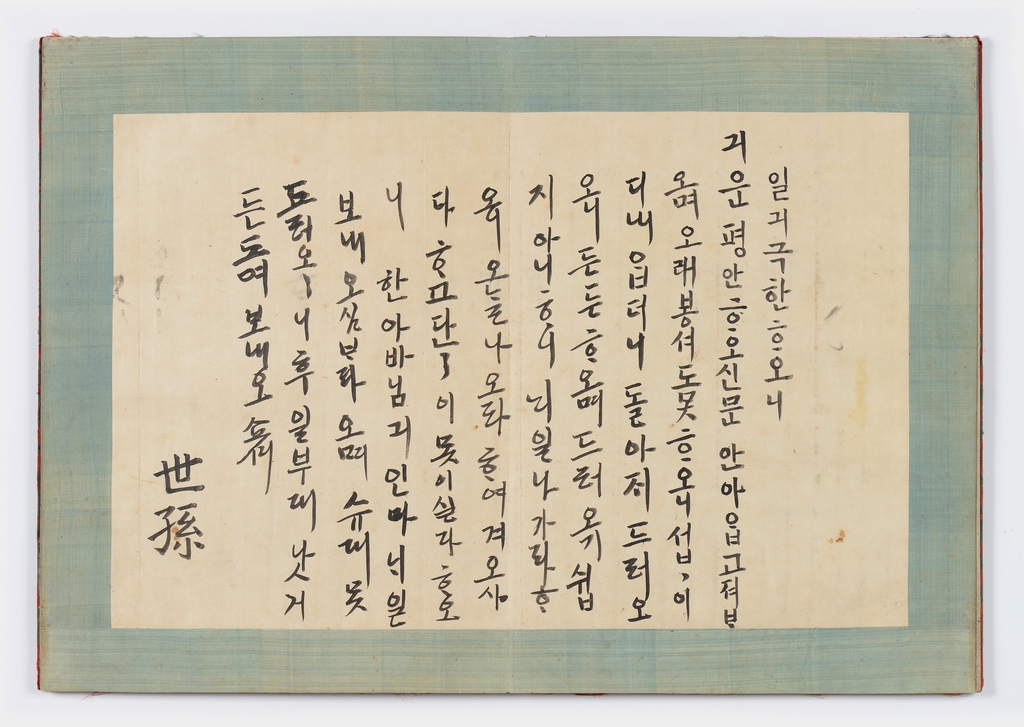 일긔극한ᄒᆞ오니
긔운 평안ᄒᆞ오신 문안 아ᄋᆞᆸ고져 ᄇᆞ
오며 오래 봉셔도 못ᄒᆞ오니 섭〻이
디내ᄋᆞᆸ더니 돌아재 드러오
오니 든든ᄒᆞ오며 드러오기 쉽
지 아니ᄒᆞ니 ᄂᆡ일 나가라 ᄒᆞ
오니 오ᄂᆞᆯ 나오라 ᄒᆞ여겨오시
다 ᄒᆞ고 단〻이 못 이실다 ᄒᆞ오
니 한아바님긔 인마 ᄂᆡ일
보내오심 ᄇᆞ라오며 슈대 못
드러오〻니 후일 부대 낫거
든 드려보내오쇼셔
世孫